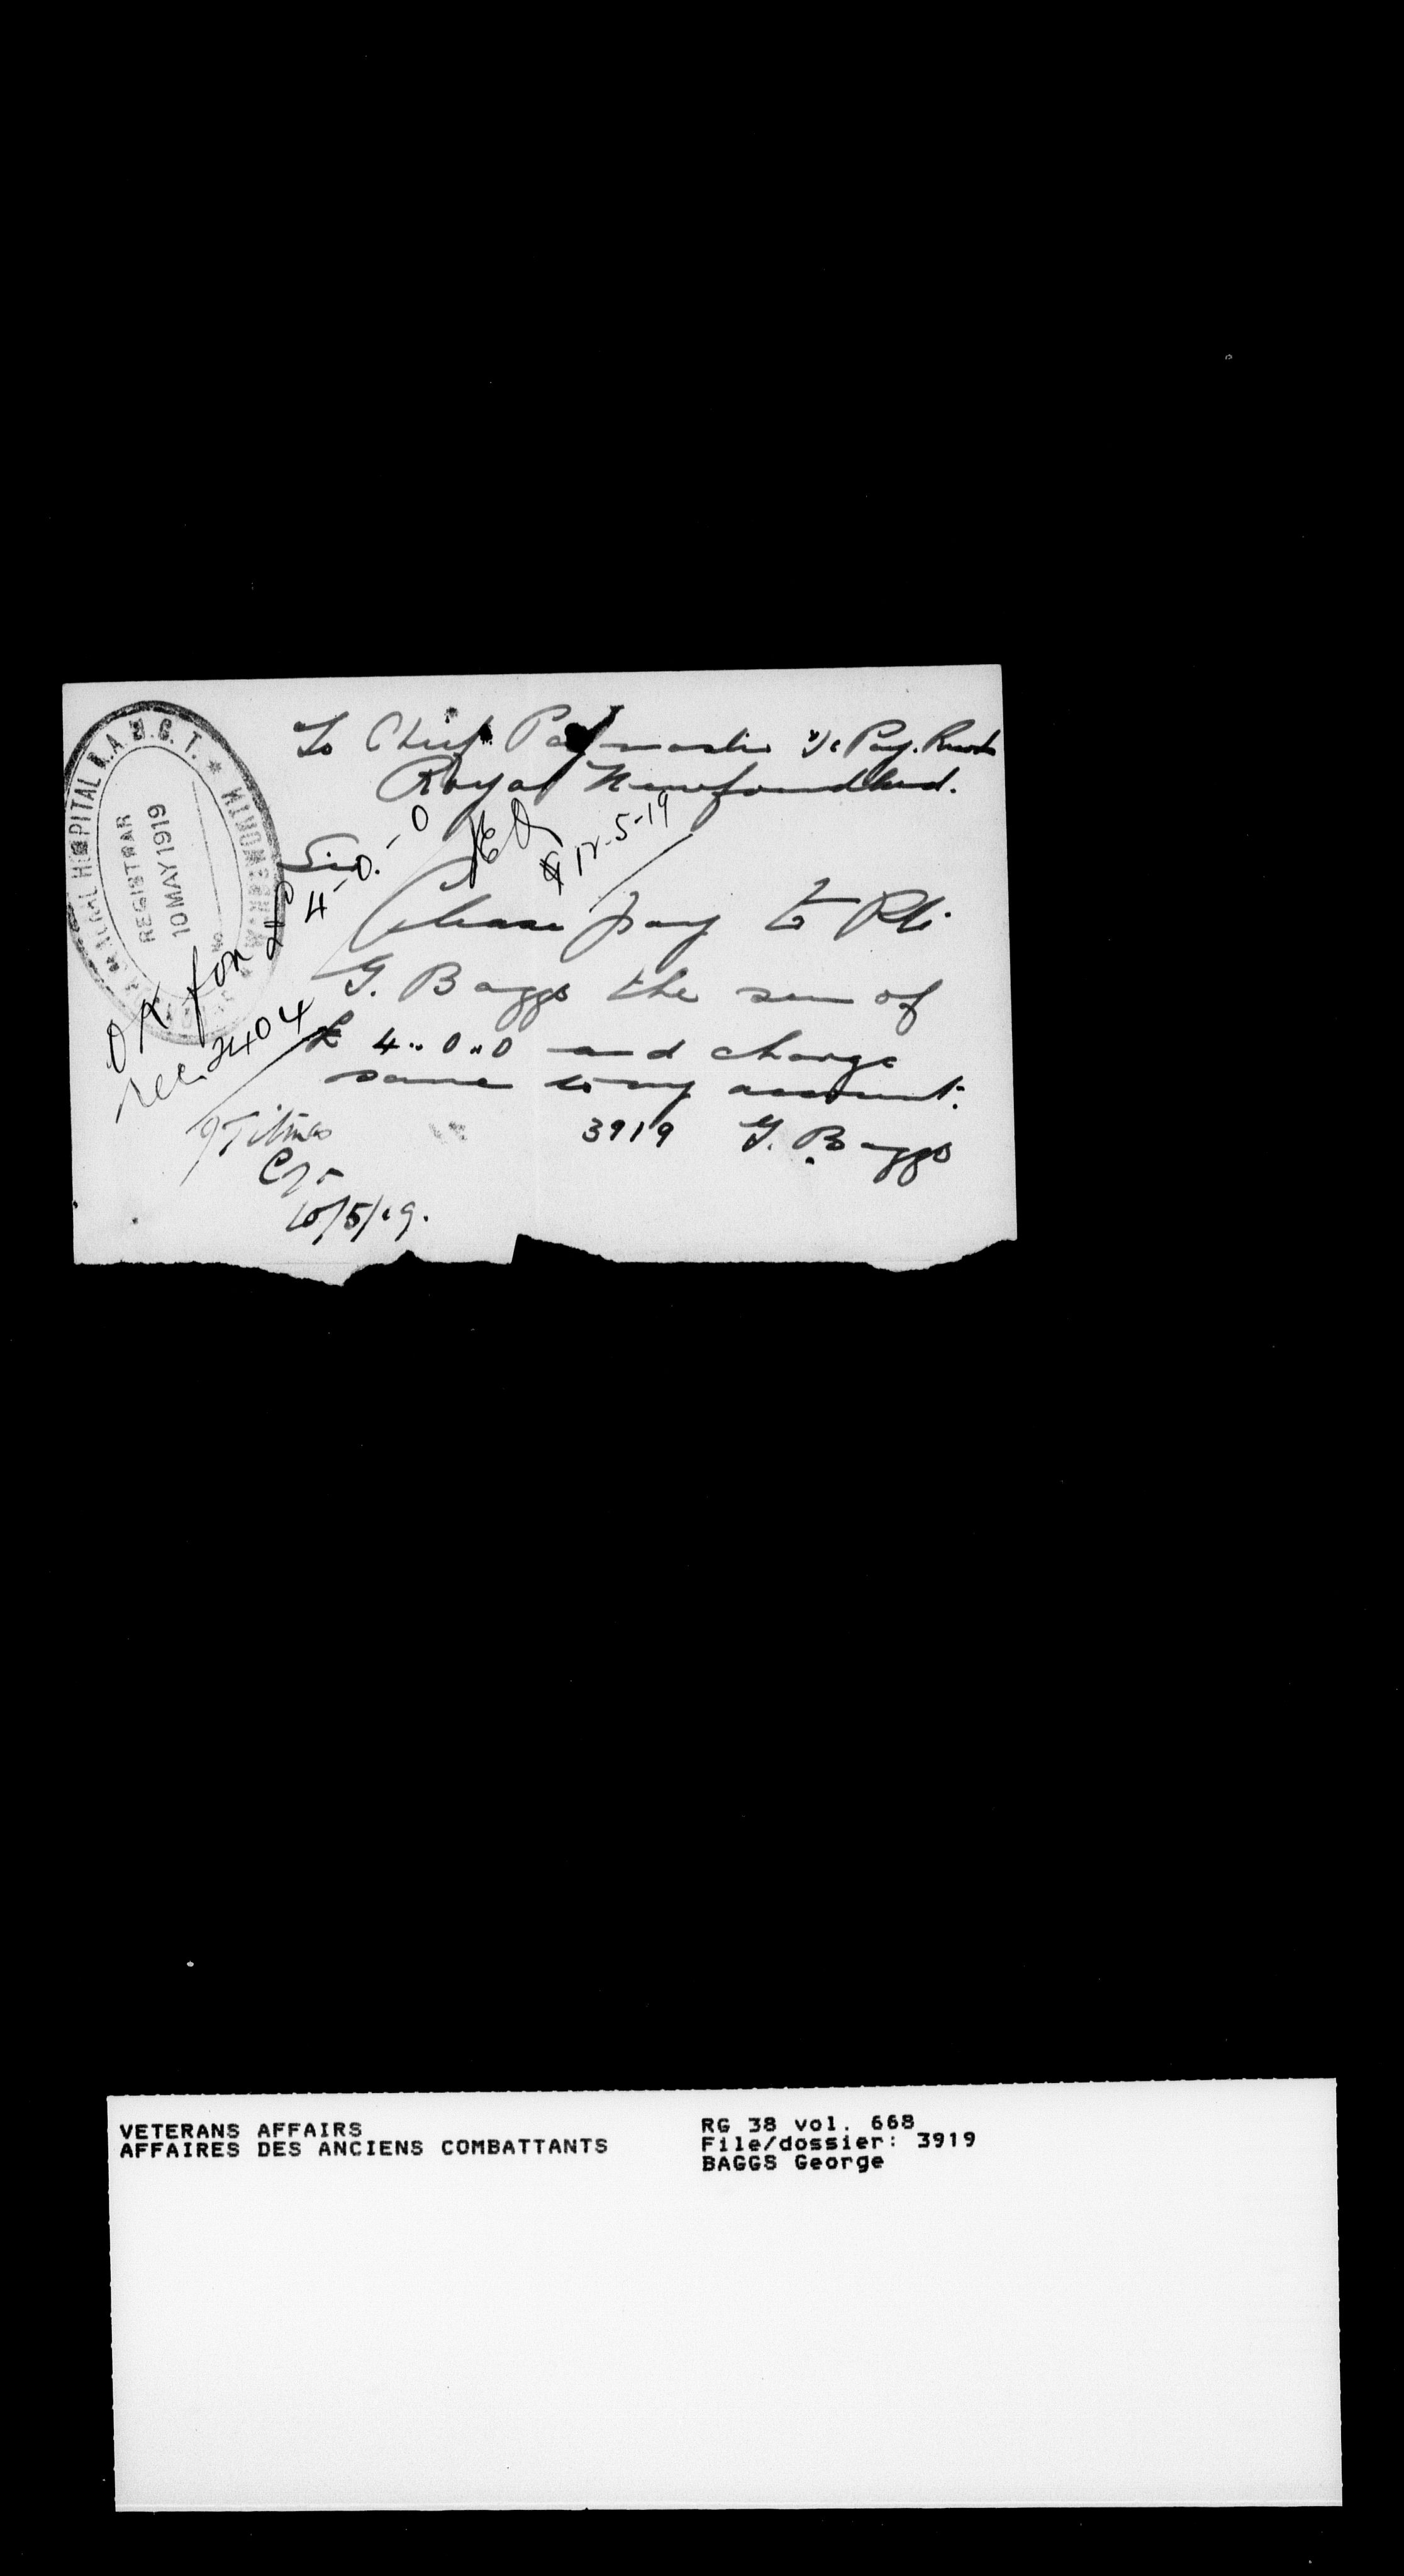 To Chief Paymaster i/c Pay. Records
Royal Newfoundland.
HOSPITAL R.A.M.C.T.
REGISTRAR
10 MAY 1919
Sir.
12-5-19
OK for
4-0-0
rec. 2404
Please pay to Pte
G. Baggs the sum of
£ 4..0..0 and charge
same to my account.
3919 G. Baggs
10/5/19.
VETERANS AFFAIRS
AFFAIRES DES ANCIENS COMBATTANTS
RG 38 vol. 668
File/dossier: 3919
BAGGS George